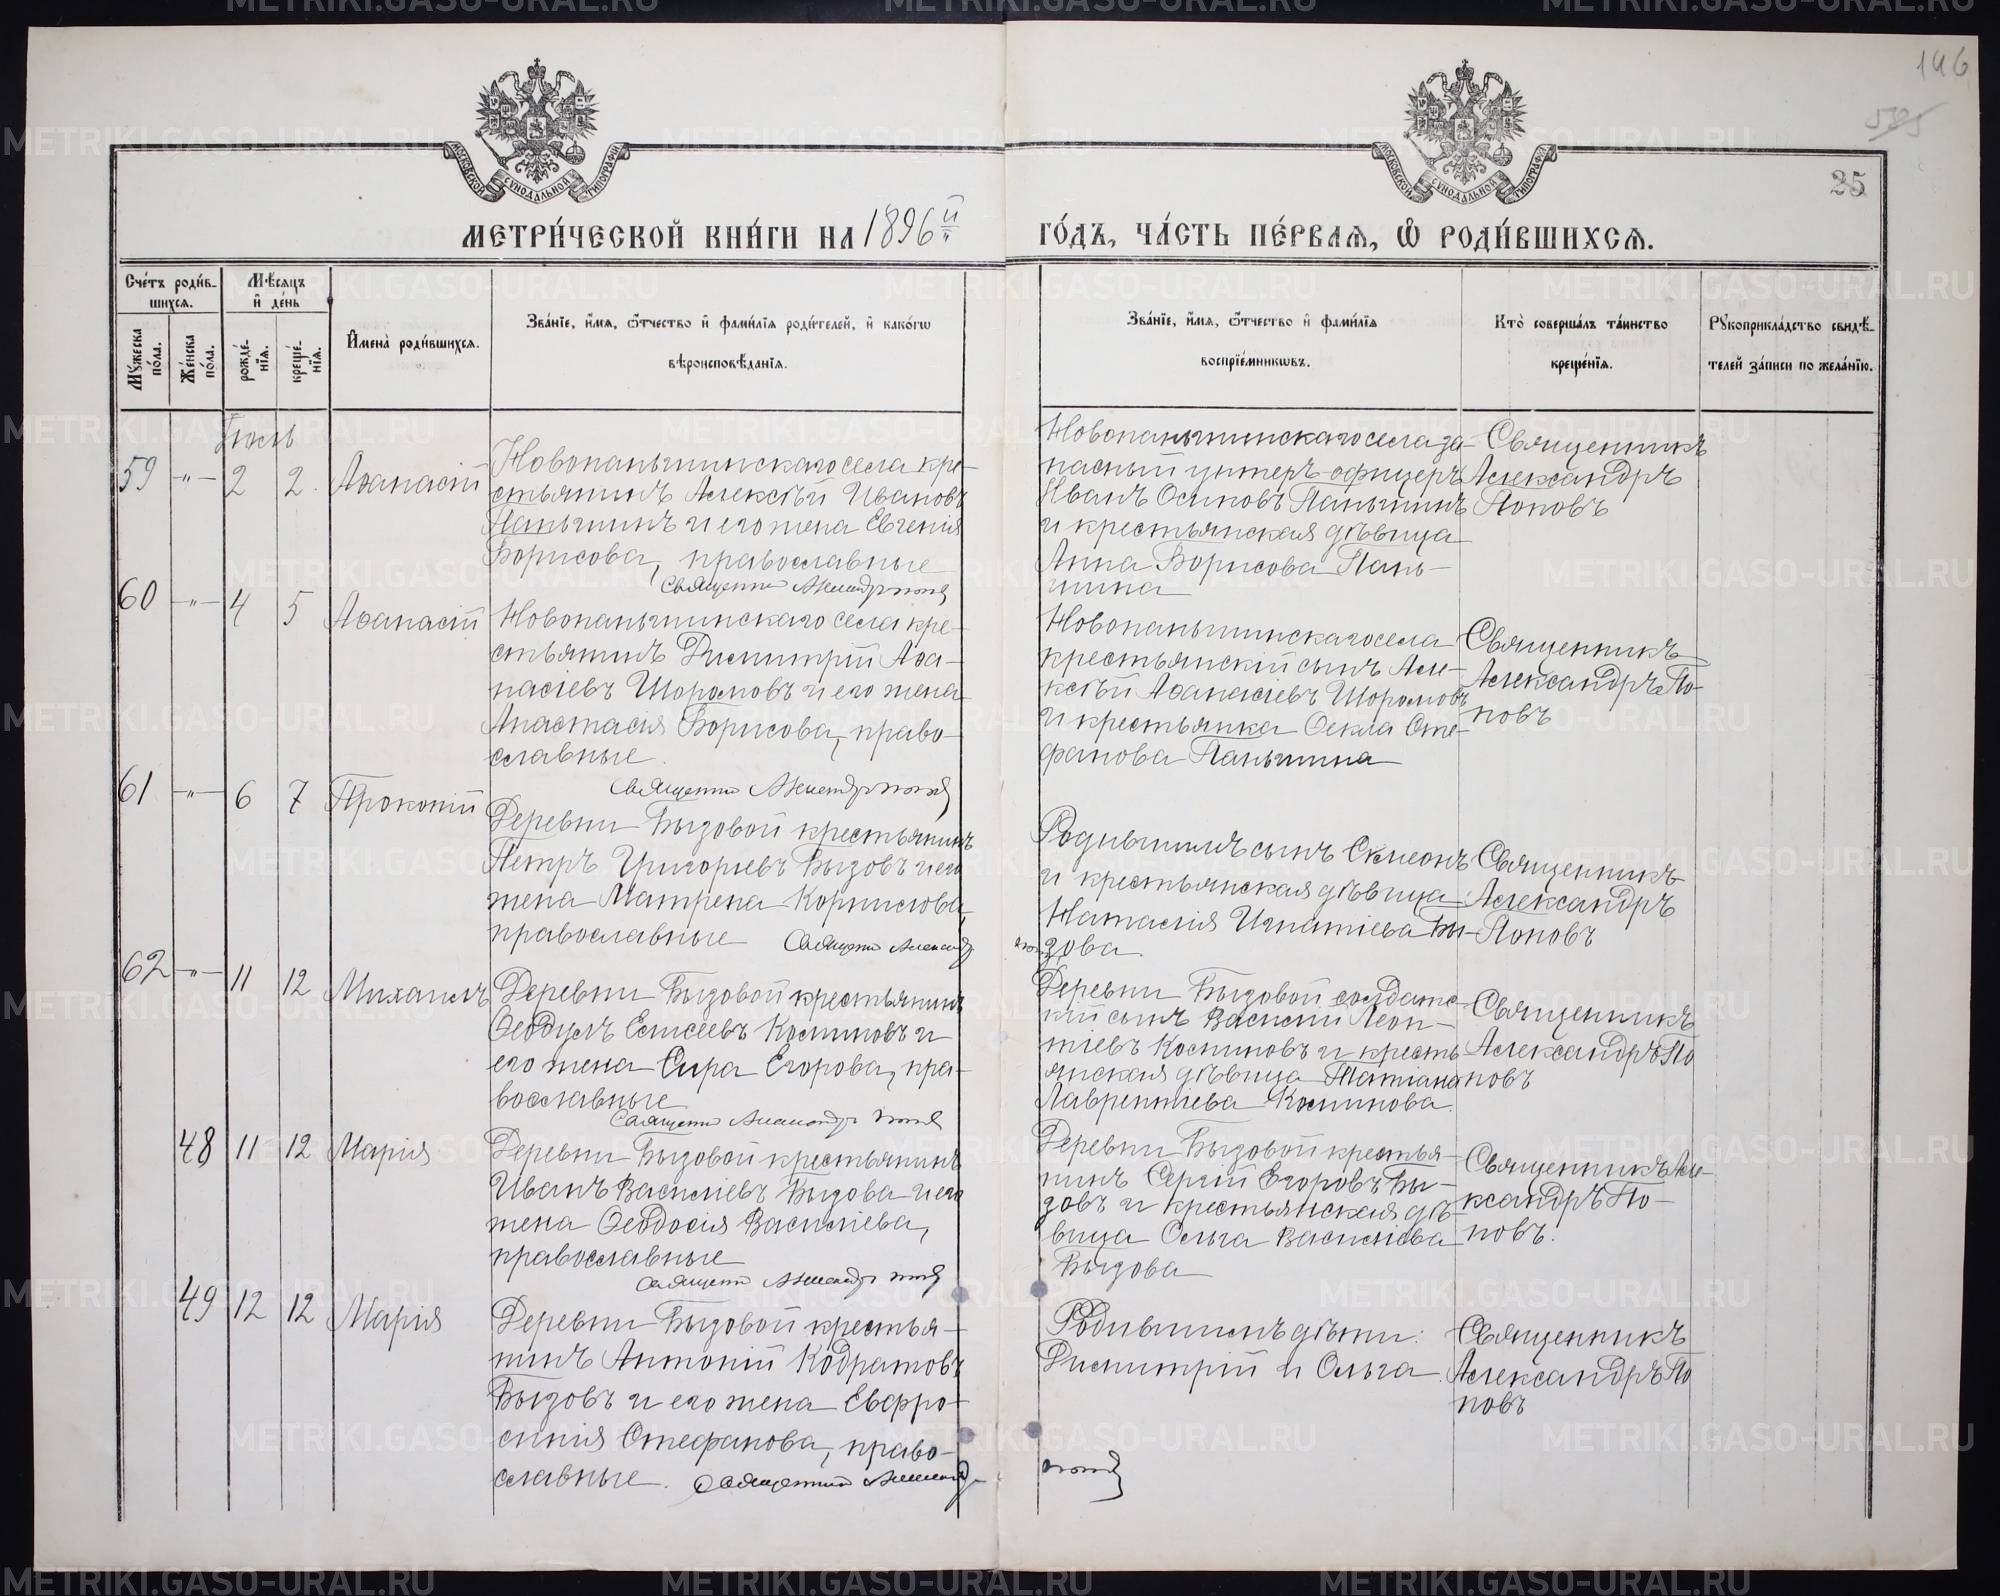 146
505
25
МОСКОВСКОЙ СѴНОДАЛЬНОЙ ТИПОГРАФІИ
МОСКОВСКОЙ СѴНОДАЛЬНОЙ ТИПОГРАФІИ
МЕТРИ́ЧЕСКОЙ КНИ́ГИ НА 1896й
ГО́ДЪ, ЧА́СТЬ ПЕ́РВАЯ, Ѡ҆ РОДИ́ВШИХСЯ.
Сче́тъ роди́в-
шихся.
Мѣ́сяцъ
и҆ де́нь
Мꙋ́жеска по́ла.
Же́нска по́ла.
рожде́-
нїя.
креще́-
нїя.
И҆мена̀ роди́вшихся.
Зва́нїе, и҆́мя, ѻ҆́тчество и҆ фами́лїя роди́телей, и҆ како́гѡ
вѣроисповѣ́данїя.
Зва́нїе, и҆́мя, ѻ҆́тчество и҆ фами́лїя
воспрїе́мникѡвъ.
Кто̀ соверша́лъ та́инство
креще́нїя.
Рꙋкоприкла́дство свидѣ́-
телей за́писи по жела́нїю.
Іюль
59 -"- 2 2. Аѳанасій
Новопаньшинскаго села кре-
стьянинъ Алексѣй Ивановъ
Паньшинъ и его жена Евгенія
Борисова, православные
Священни Александръ Попов
Новопаньшинскаго села за-
пасный унтеръ-офицеръ
Иванъ Осиповъ Паньшинъ
и крестьянская дѣвица
Анна Борисова Пань-
шина
Священникъ
Александръ
Поповъ
60 -"- 4 5 Аѳанасій
Новопаньшинскаго села кре-
стьянинъ Димитрій Аѳа-
насіевъ Шоромовъ и его жена
Анастасія Борисова, право-
славные.
Священни Александръ Попов
Новопаньшинскаго села
крестьянскій сынъ Але-
ксѣй Аѳанасіевъ Шоромовъ
и крестьянка Ѳекла Сте-
фанова Паньшина
Священникъ
Александръ По-
повъ
61 -"- 6 7 Прокопій
Деревни Бызовой крестьянинъ
Петръ Григорьевъ Бызовъ и его
жена Матрена Корнилова,
православные Священни Александръ Попов
Родившимъ сынъ Симеонъ
и крестьянская дѣвица
Наталія Игнатіева Бы-
зова.
Священникъ
Александръ
Поповъ
62 -"- 11 12 Михаилъ
Деревни Бызовой крестьянинъ
Ѳеодулъ Елисеевъ Косиковъ и
его жена Сира Егорова, пра-
вославные
Священни Александръ Попов
Деревни Бызовой солдатс-
кій сынъ Василій Леон-
тіевъ Косиковъ и кресть-
янская дѣвица Татіана
Лаврентіева Косикова.
Священникъ
Александръ По
повъ
48 11 12 Марія
Деревни Бызовой крестьянинъ
Иванъ Василіевъ Бызова и его
жена Ѳеодосія Василіева,
православные
Священни Александръ Попов
Деревни Бызовой крестья-
нинъ Сергій Егоровъ Бы-
зовъ и крестьянская дѣ-
вица Ольга Василіева
Бызова
Священникъ Але-
ксандръ По-
повъ.
49 12 12 Марія
Деревни Бызовой крестья-
нинъ Антоній Кодратовъ
Бызовъ и его жена Евфро-
синія Стефанова, право-
славные. Священни Александръ Попов
Родившимъ дѣти:
Димитрій и Ольга.
Священникъ
Александръ По
повъ
METRIKI.GASO-URAL.RU